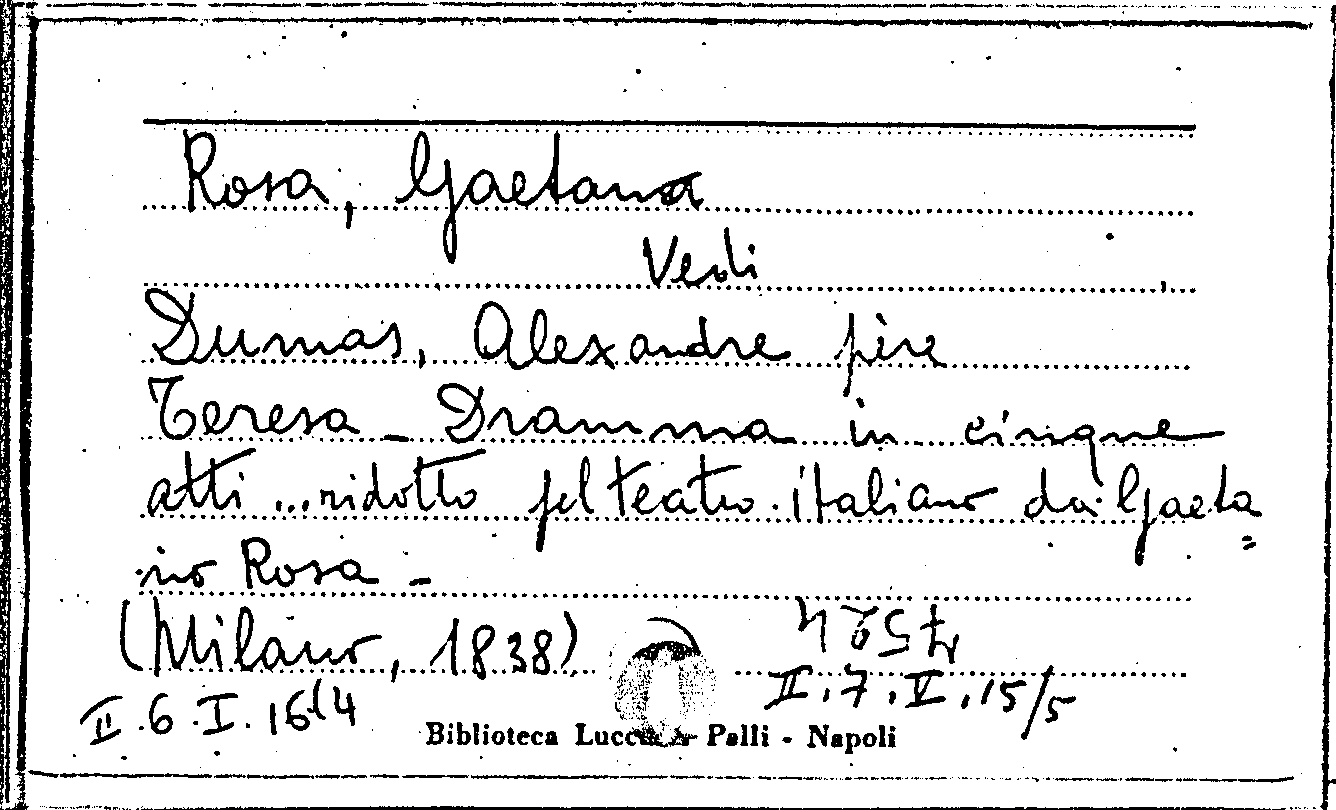 Rosa, Gaetana
Vedi
Dumas, Alexandre père
Teresa - Dramma in cinque
atti ... ridotto pel teatro italiano da Gaeta=
no Rosa -
(Milano, 1838)
II.6.I.16(4
II.7.V.15/5
Biblioteca Lucchesi Palli - Napoli